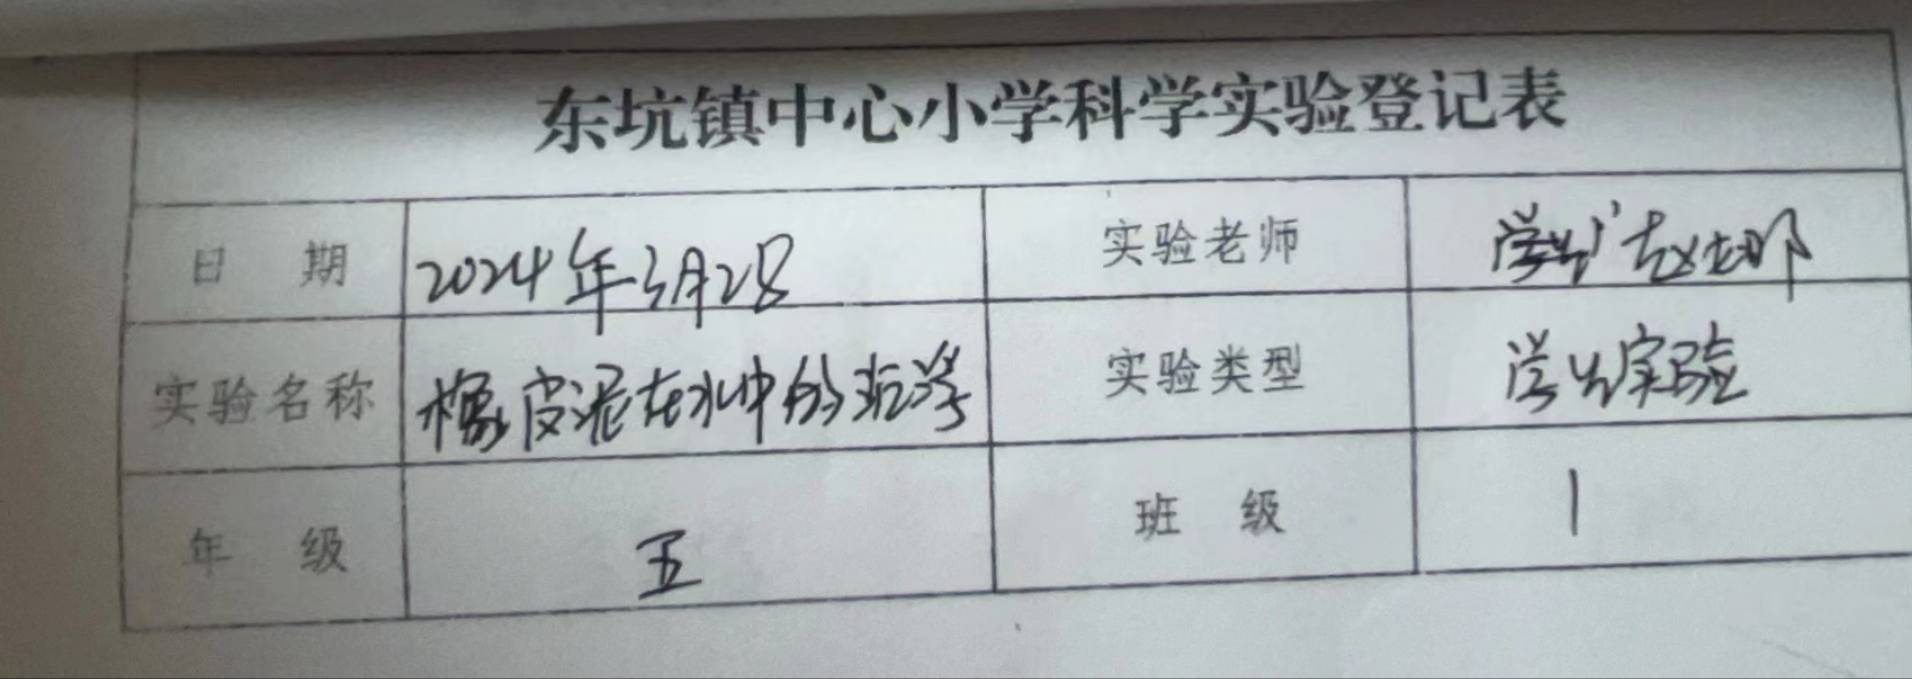 东坑镇中心小学科学实验登记表
日 期 2024年3月28 实验老师
实验名称 橡皮泥在水中的沉浮 实验类型 学生实验
年 级 五 班 级 1